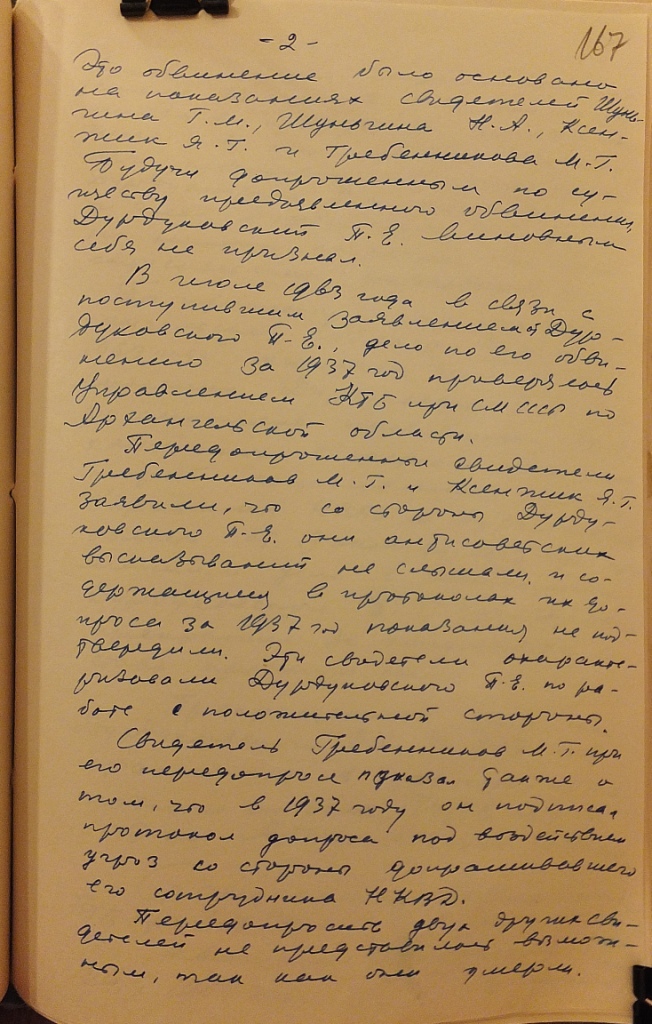 - 2 -
167
Это обвинение было основано
на показаниях свидетелей Шунь-
гина Г.М., Шуньгина Н.А., Ксен-
жик Я.Т. и Гребенникова М.Т.
Будучи допрошенным по су-
ществу предъявленного обвинения,
Дурдуковский П.Е. виновным
себя не признал.
В июле 1963 года в связи с
поступившим заявлением Дур-
дуковского П.Е., дело по его обви-
нению за 1937 год проверялось
Управлением КГБ при СМ СССР по
Архангельской области.
Передопрошенные свидетели
Гребенников М.Т. и Ксенжик Я.Т.
заявили, что со стороны Дурду-
ковского П.Е. они антисоветских
высказываний не слышали и со-
держащиеся в протоколах их до-
проса за 1937 год показания не под-
твердили. Эти свидетели охаракте-
ризовали Дурдуковского П.Е. по ра-
боте с положительной стороны.
Свидетель Гребенников М.Т. при
его передопросе показал также о
том, что в 1937 году он подписал
протокол допроса под воздействием
угроз со стороны допрашивавшего
его сотрудника НКВД.
Передопросить двух других сви-
детелей не представилось возмож-
ным, так как они умерли.